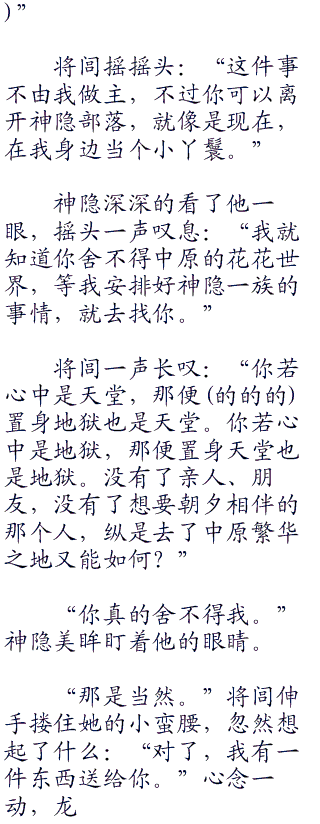 )”
将闾摇摇头：“这件事
不由我做主，不过你可以离
开神隐部落，就像是现在，
在我身边当个小丫鬟。”
神隐深深的看了他一
眼，摇头一声叹息：“我就
知道你舍不得中原的花花世
界，等我安排好神隐一族的
事情，就去找你。”
将闾一声长叹：“你若
心中是天堂，那便(的的的)
置身地狱也是天堂。你若心
中是地狱，那便置身天堂也
是地狱。没有了亲人、朋
友，没有了想要朝夕相伴的
那个人，纵是去了中原繁华
之地又能如何？”
“你真的舍不得我。”
神隐美眸盯着他的眼睛。
“那是当然。”将闾伸
手搂住她的小蛮腰，忽然想
起了什么：“对了，我有一
件东西送给你。”心念一
动，龙